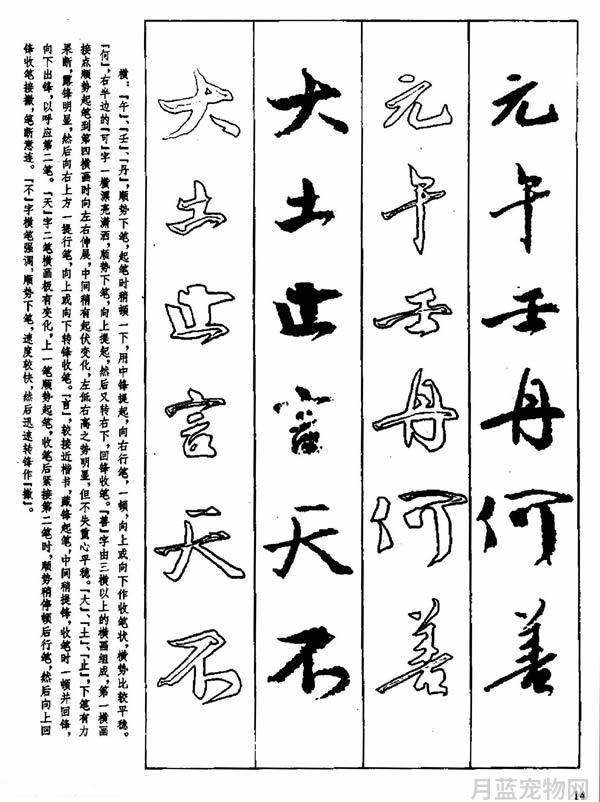 元午壬丹何善
元午壬丹何善
大土止言天不
大土止言天不
横。「午」、「壬」、「丹」,顺势下笔,起笔时稍顿一下,用中锋提起,向右行笔,一顿,向上或向下作收笔状,横势比较平稳。
「何」,右半边的「可」字一横漂亮潇洒,顺势下笔,向上提起,然后又转右下,回锋收笔。「善」字由三横以上的横画组成,第一横画
接点顺势起笔到第四横画时向左右伸展,中间稍有起伏变化,左低右高之势明显,但不失重心平稳。「大」、「土」、「止」,下笔有力
果断,露锋明显,然后向右上方一提行笔,向上或向下转锋收笔。「言」,较接近楷书,藏锋起笔,中间稍提锋,收笔时一顿并回锋,
向下出锋,以呼应第二笔。「天」字二笔横画极有变化,上一笔顺势起笔,收笔后紧接第二笔时,顺势稍停顿后行笔,然后向上回
锋收笔接撇,笔断意连。「不」字横笔强调,顺势下笔,速度较快,然后迅速转锋作「撇」。
14
月蓝宠物网